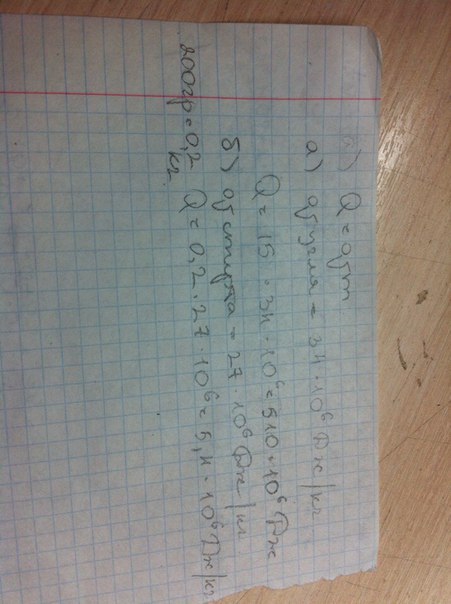 ) Q = qm
а) q угля = 34 · 10⁶ Дж/кг
Q = 15 · 34 · 10⁶ = 510 · 10⁶ Дж
б) q спирта = 27 · 10⁶ Дж/кг
200гр = 0,2 кг Q = 0,2 · 27 · 10⁶ = 5,4 · 10⁶ Дж/кг